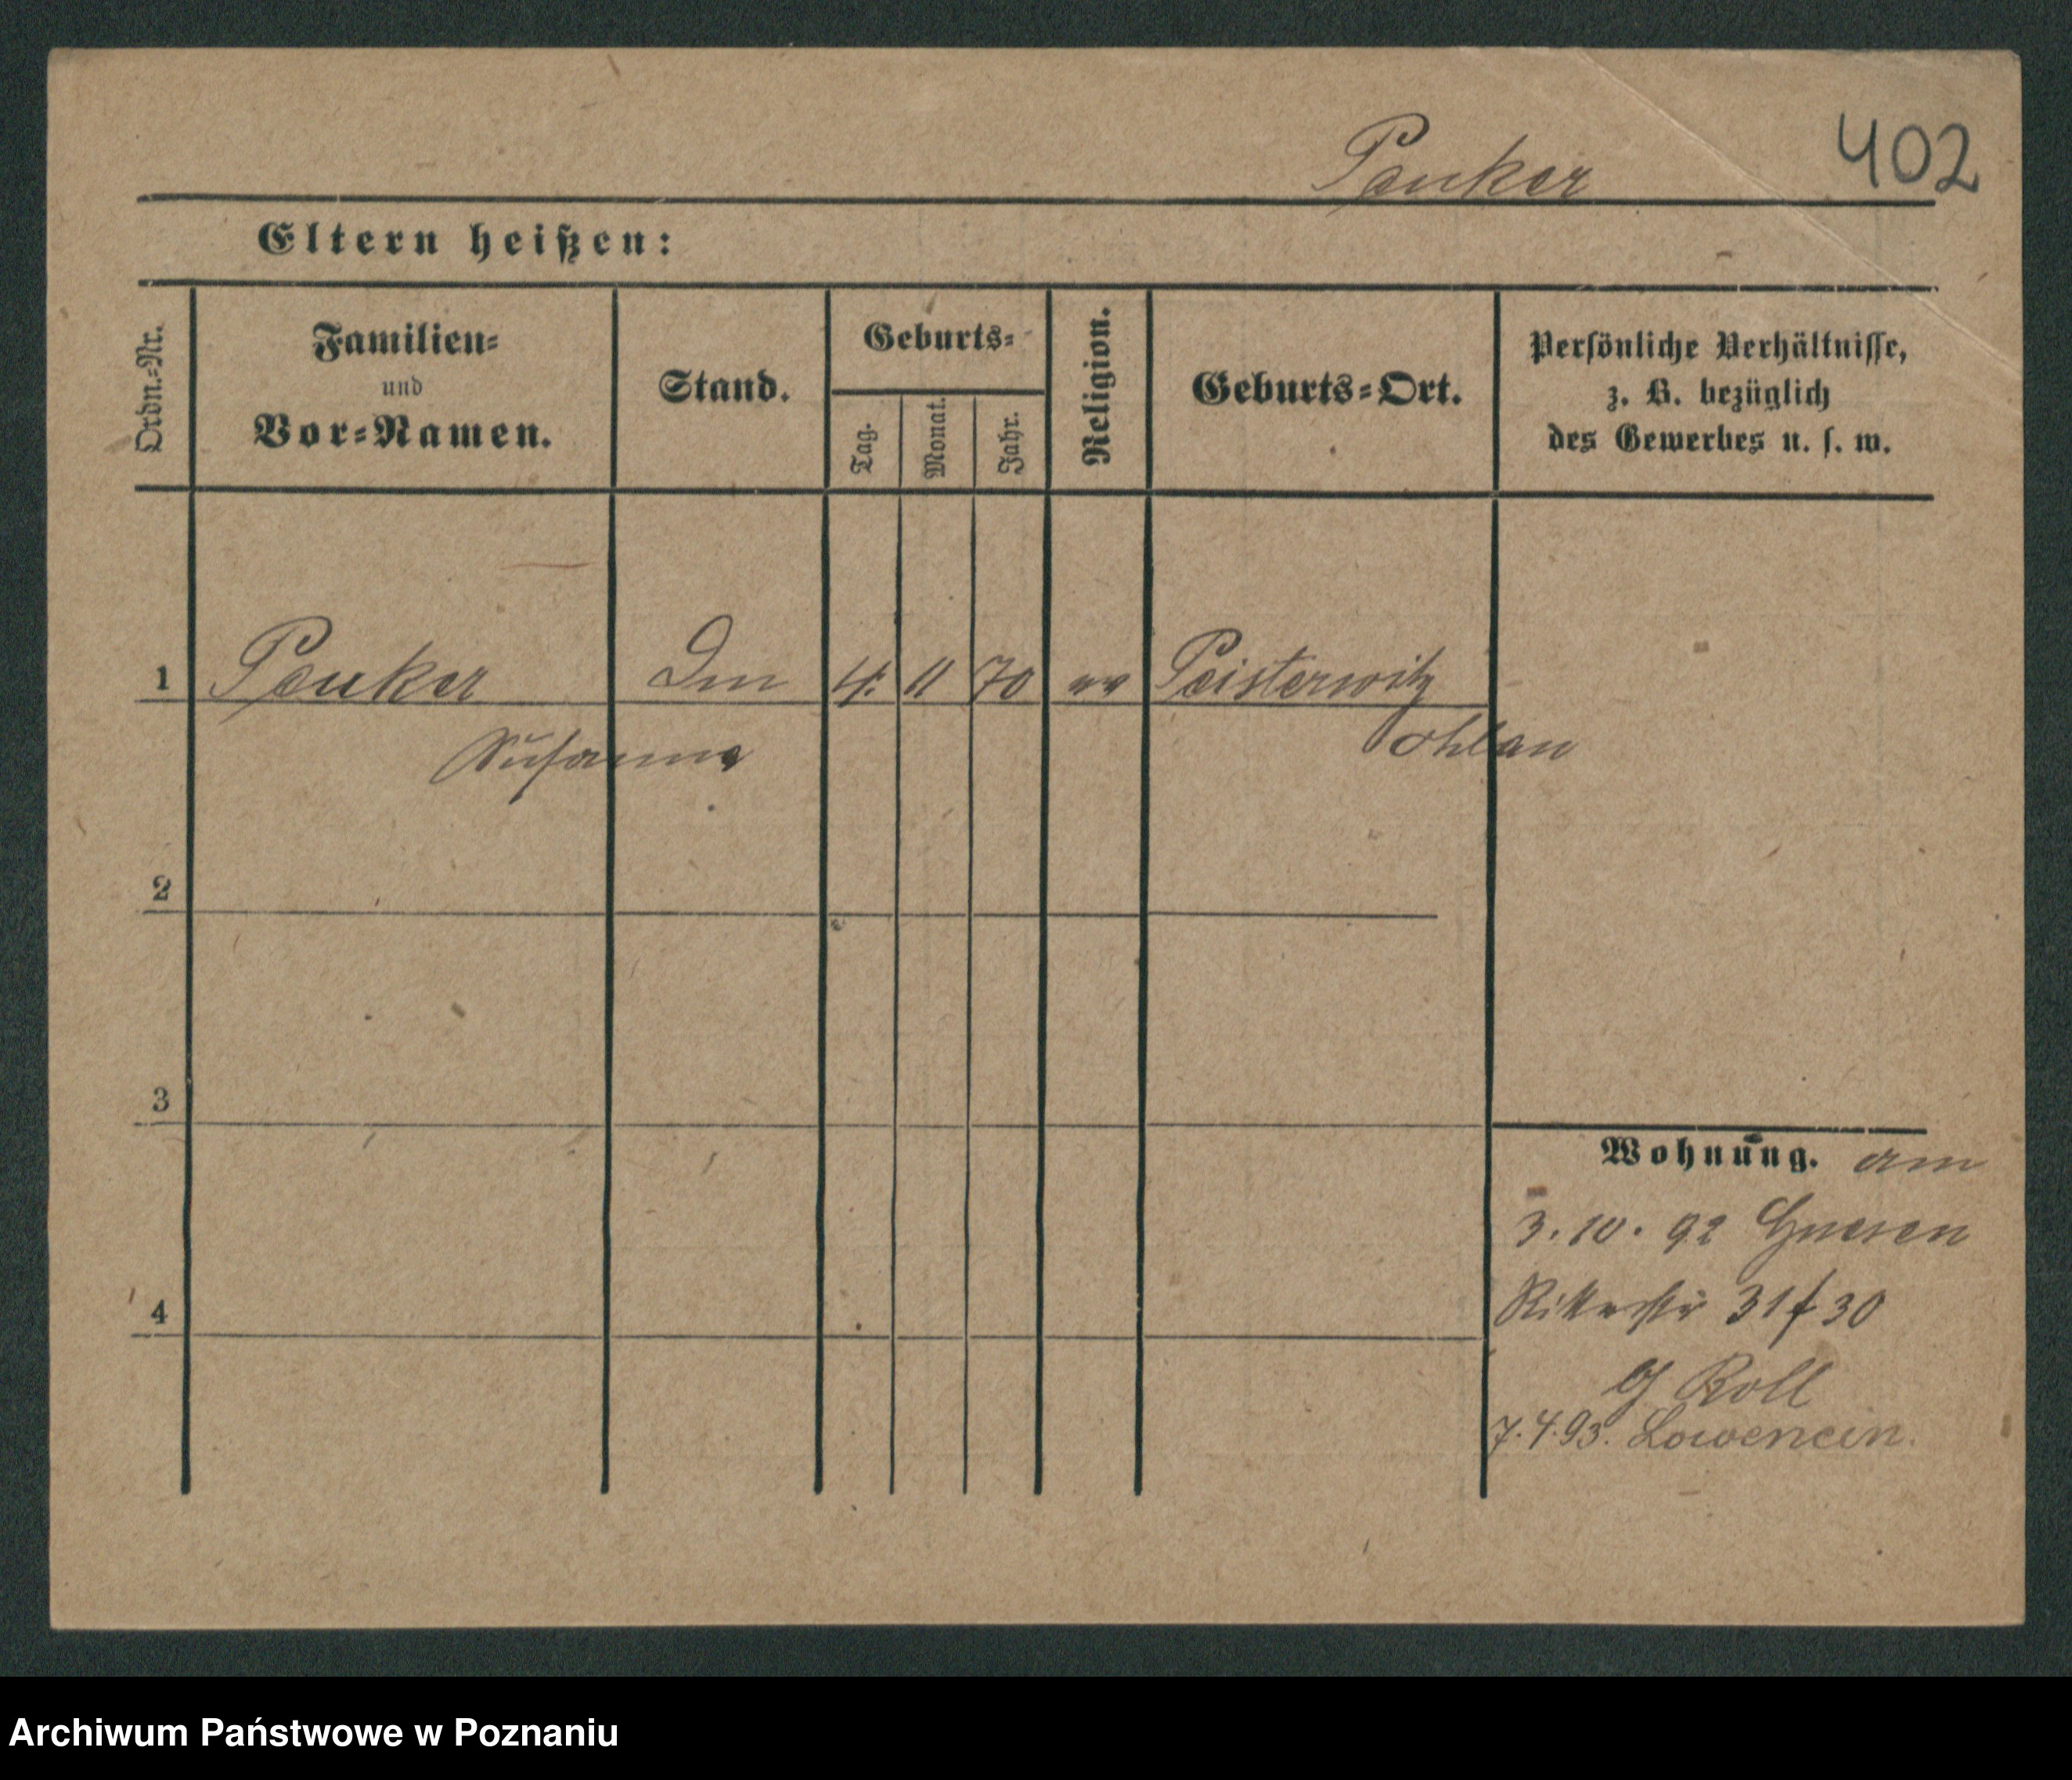 Pauker 402
Eltern heißen:
Ordn.-Nr.
Familien-
und
Vor-Namen.
Stand.
Geburts-
Tag.
Monat.
Jahr.
Religion.
Geburts-Ort.
Persönliche Verhältnisse,
z. B. bezüglich
des Gewerbes u. s. w.
1 Pauker 4. 11 70 ev Peisterwitz
Susanna Ohlau
2
3
4
Wohnung. am
3. 10. 92 Gnesen
Ritterstr 31 f 30
Roll
7. 4. 93. Lowencin.
Archiwum Państwowe w Poznaniu